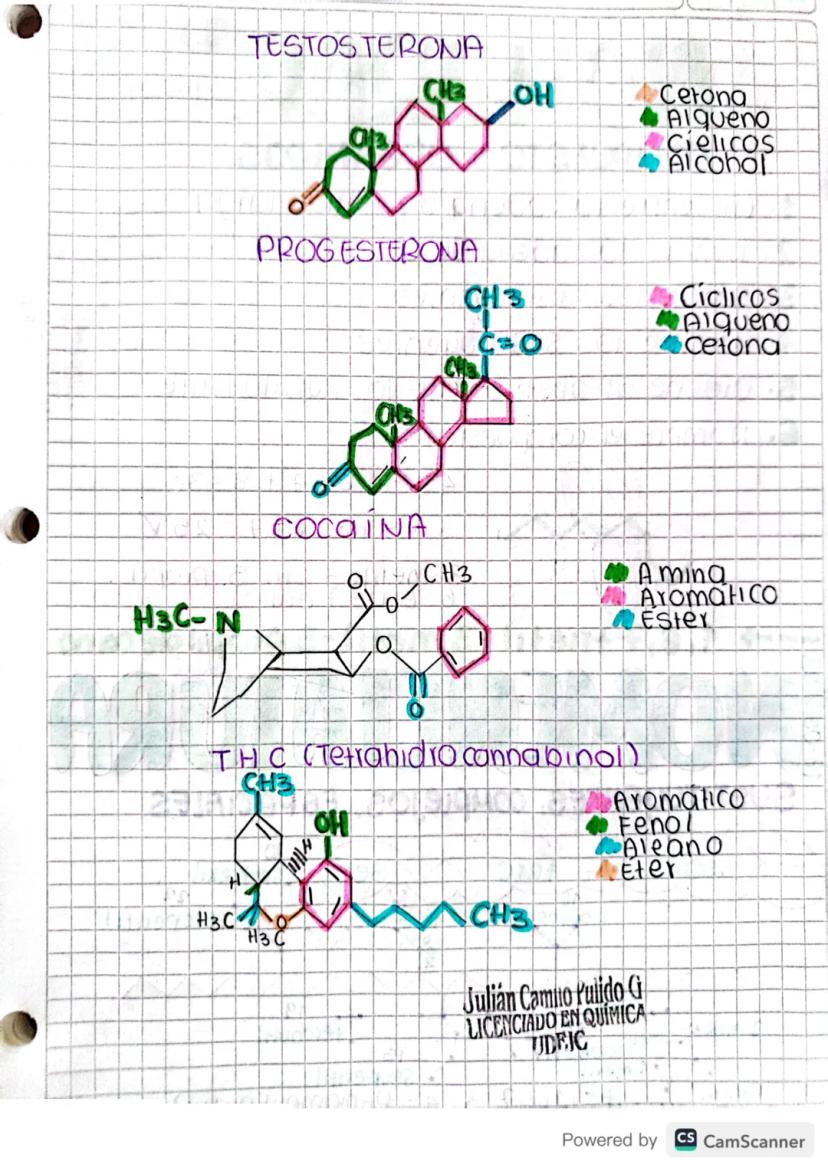 TESTOSTERONA
CH3
OH
CH3
O
Cetona
Alqueno
Cíclicos
Alcohol
PROGESTERONA
CH3
C=O
CH3
CH3
O
Cíclicos
Alqueno
Cetona
COCAÍNA
O
CH3
O
H3C-N
O
O
Amina
Aromático
Ester
THC (Tetrahidrocannabinol)
CH3
OH
H
H
H3C
O
H3C
CH3
Aromático
Fenol
Alcano
Éter
Julián Camilo Pulido G
LICENCIADO EN QUÍMICA
Powered by CS CamScanner